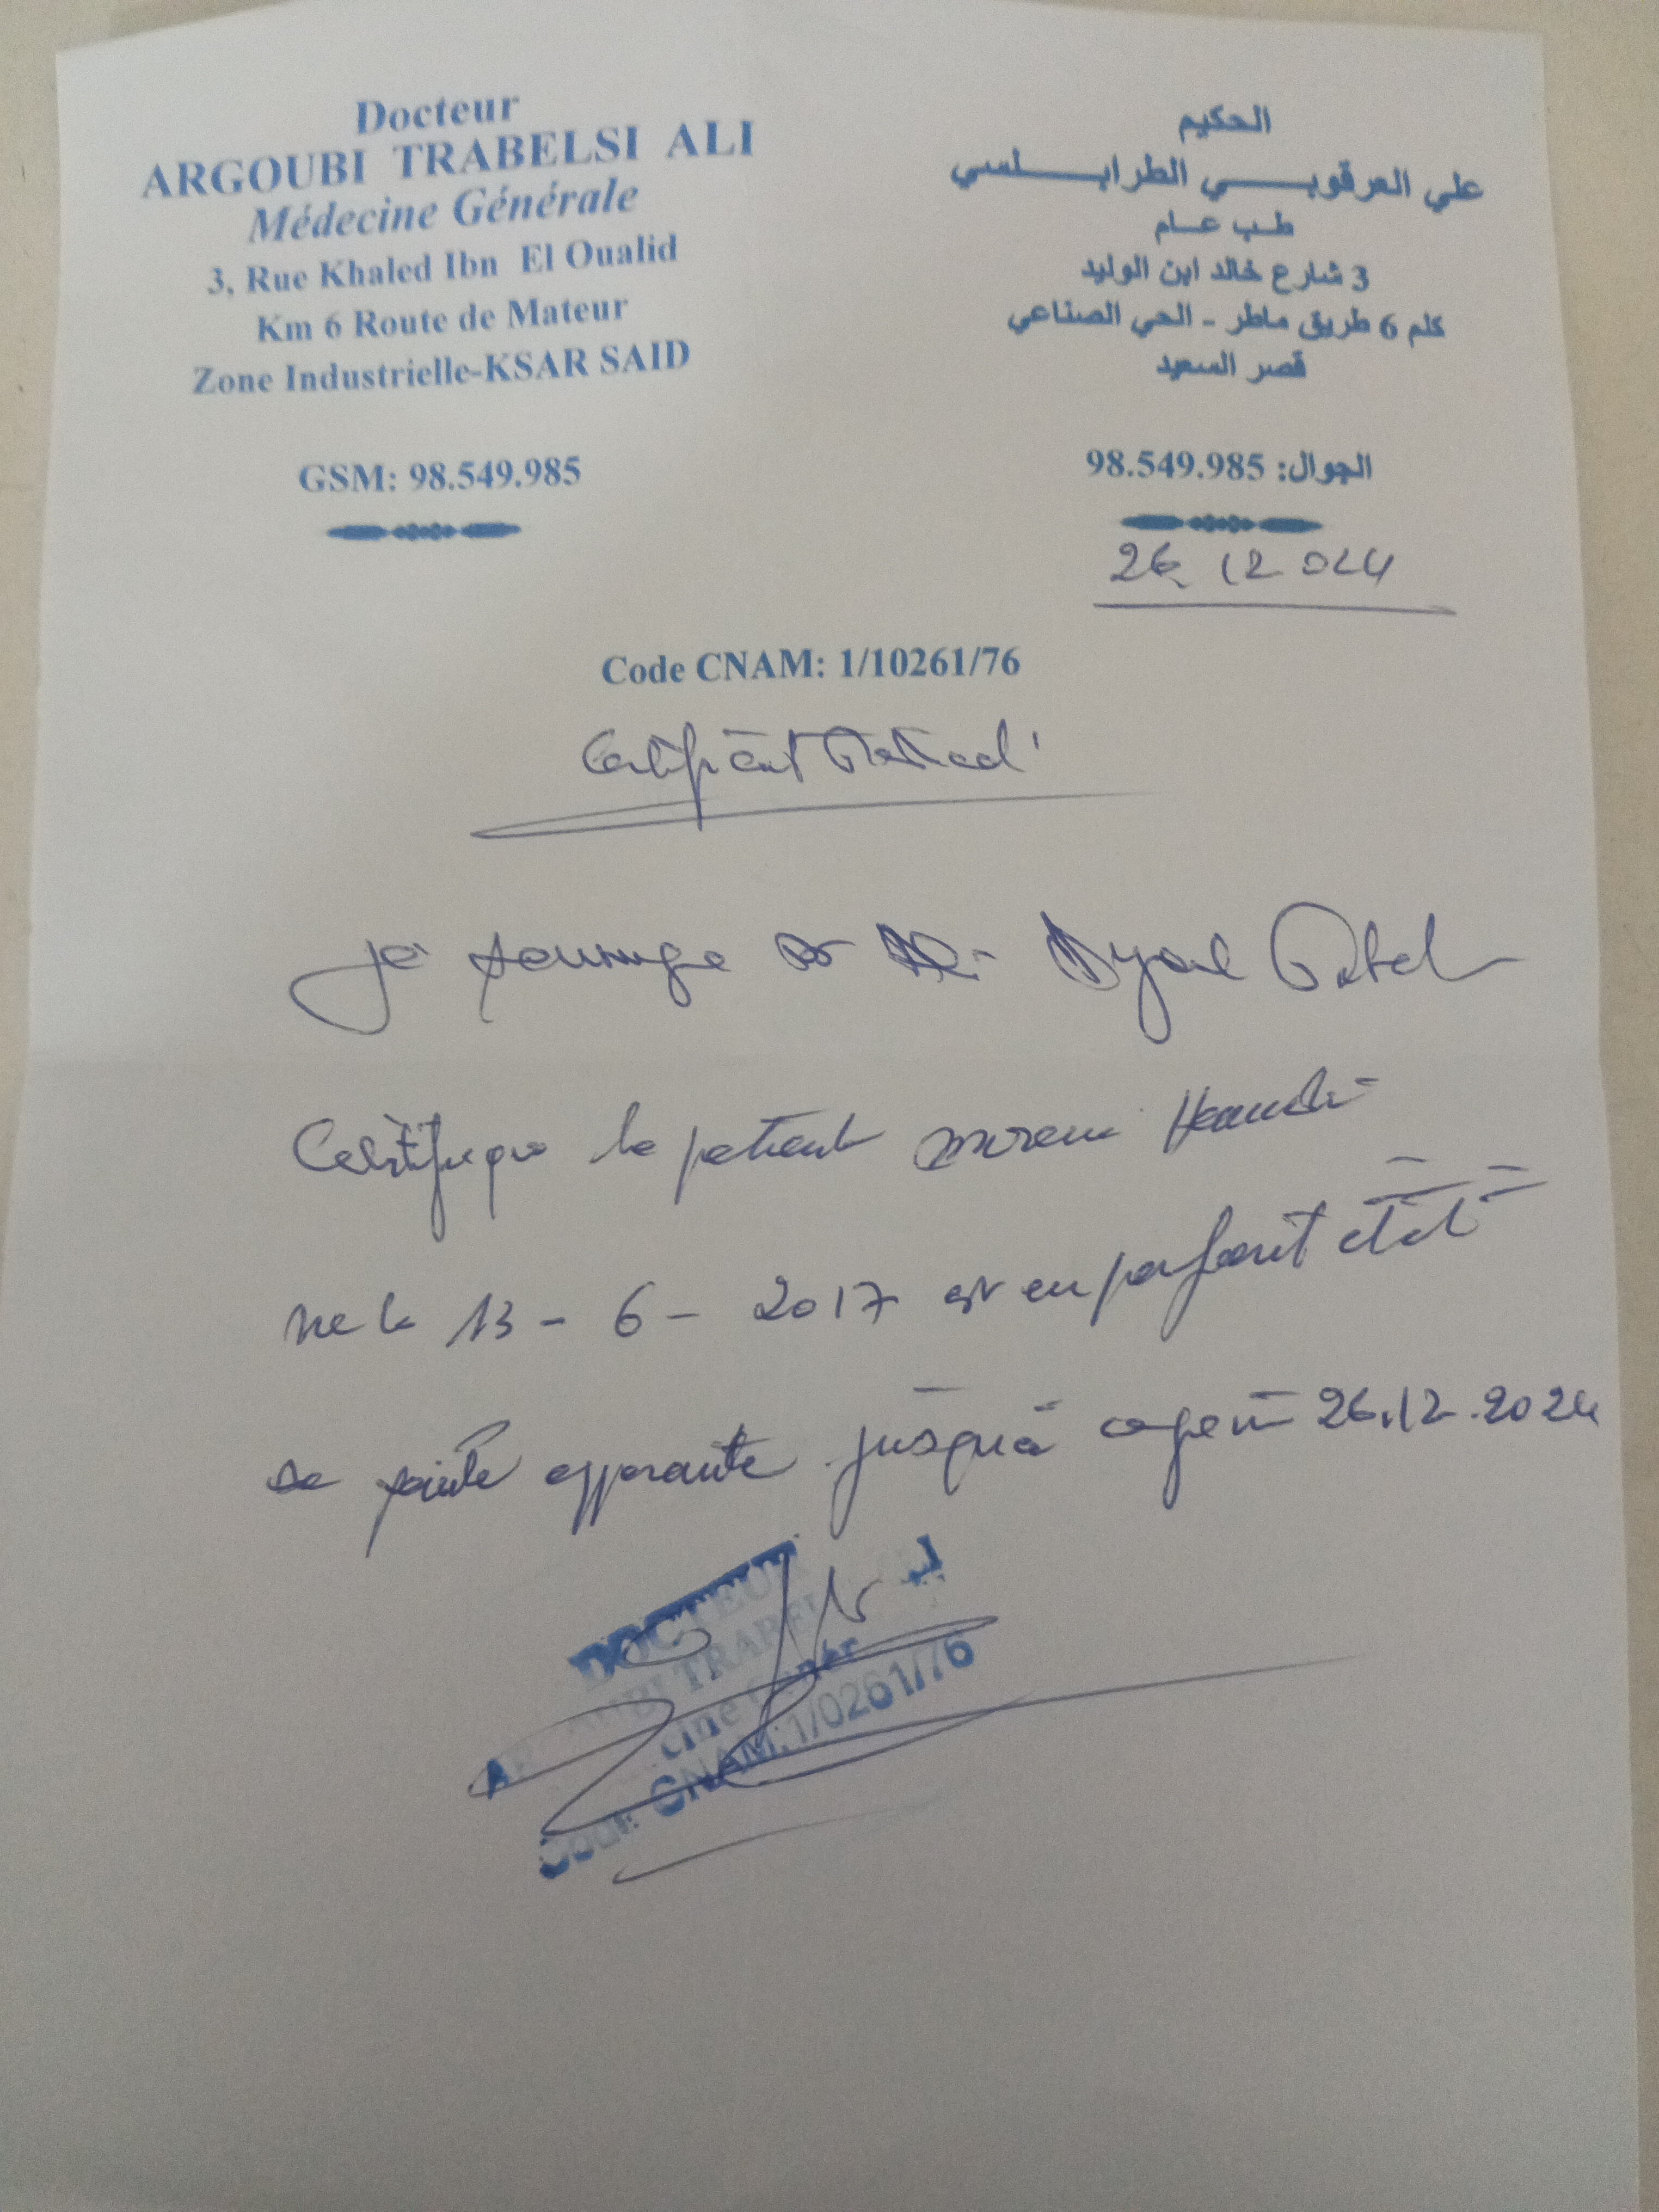 Docteur
ARGOUBI TRABELSI ALI
Médecine Générale
3, Rue Khaled Ibn El Oualid
Km 6 Route de Mateur
Zone Industrielle-KSAR SAID
GSM: 98.549.985
الحكيم
علي العرقوبـــي الطرابـــلسي
طب عام
3 شارع خالد ابن الوليد
كلم 6 طريق ماطر - الحي الصناعي
قصر السعيد
الجوال: 98.549.985
26. 12 024
Code CNAM: 1/10261/76
Certificat Médical
Je soussigné Dr
Certifie que le patient
né le 13 - 6 - 2017 est en parfait état
de santé apparente jusqu'à ce jour 26.12.2024
DOCTEUR
CODE CNAM: 1/0261/76